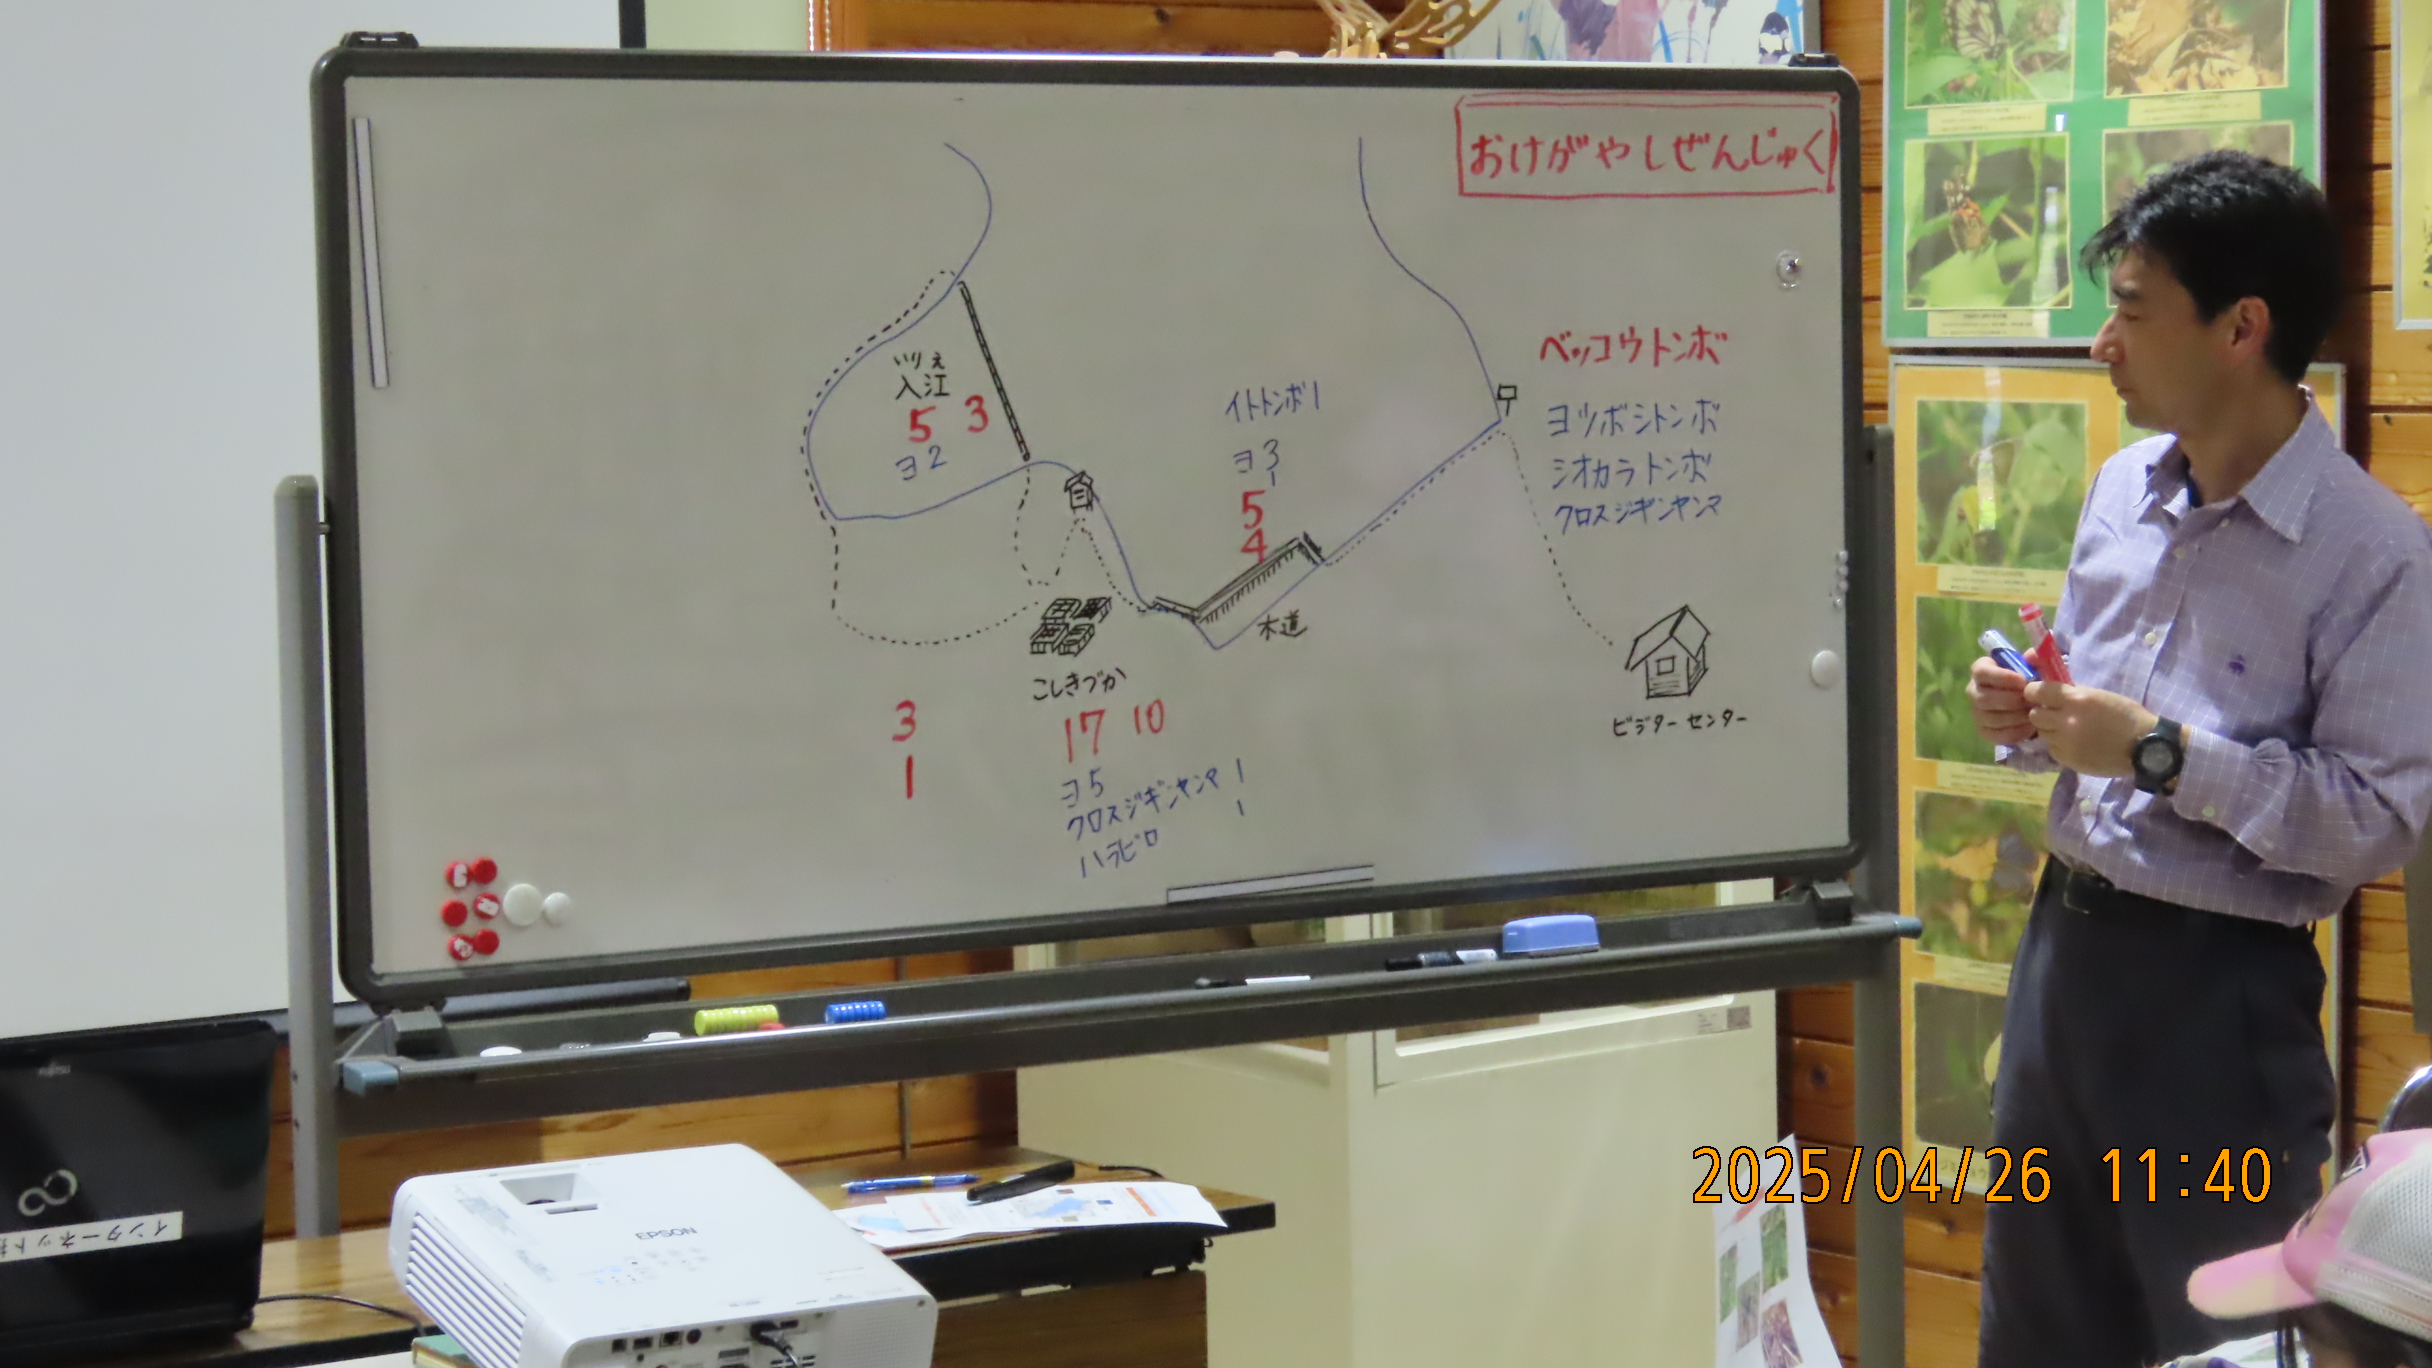 おけがやしぜんじゅく
いりえ
入江
5 3
ヨ2
イトトンボ1
ヨ3
1
5
4
木道
ベッコウトンボ
ヨツボシトンボ
シオカラトンボ
クロスジギンヤンマ
ビジターセンター
こしきづか
17 10
ヨ5
クロスジギンヤンマ 1
ハラビロ 1
3
1
FUJITSU
インターネット
EPSON
2025/04/26 11:40